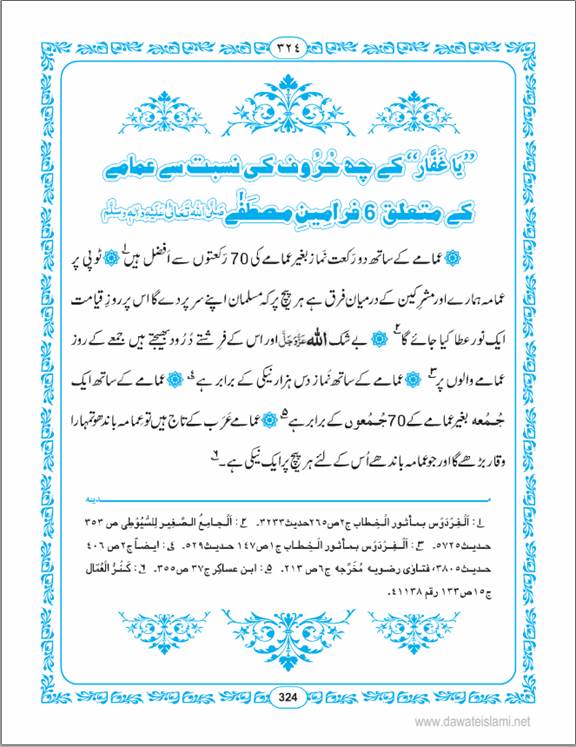 ۳۲٤
”یا غَفَّار“ کے چھ حُرُوف کی نسبت سے عمامے
کے متعلق 6 فرامینِ مصطَفٰے صَلَّی اللّٰہُ تَعَالٰی عَلَیْہِ وَاٰلِہٖ وَسَلَّم
عمامے کے ساتھ دو رَکعت نَماز بغیر عمامے کی 70 رَکعتوں سے اَفضل ہیں ۱؎ ٹوپی پر
عمامہ ہمارے اور مشرِکین کے درمیان فرق ہے ہر پیچ پر کہ مسلمان اپنے سر پر دے گا اس پر روزِ قیامت
ایک نور عطا کیا جائے گا ۲؎ بے شک اللّٰہ عَزَّوَجَلَّ اور اس کے فرشتے دُرُود بھیجتے ہیں جمعے کے روز
عمامے والوں پر ۳؎ عمامے کے ساتھ نَماز دس ہزار نیکی کے برابر ہے ۴؎ عمامے کے ساتھ ایک
جُمُعہ بغیر عمامے کے 70 جُمُعوں کے برابر ہے ۵؎ عمامے عَرَب کے تاج ہیں تو عمامہ باندھو تمہارا
وقار بڑھے گا اور جو عمامہ باندھے اُس کے لئے ہر پیچ پر ایک نیکی ہے۔ ۶؎
مدینہ
۱؎ : اَلْفِرْدَوْس بمأثور الْخِطاب ج۲ص۲۶۵حدیث۳۲۳۳۔ ۲؎ : اَلْجامِعُ الصَّغِیر لِلسُّیُوْطِی ص ۳۵۳
حدیث۵۷۲۵۔ ۳؎ : اَلْفِرْدَوْس بمأثور الْخِطاب ج۱ص۱۴۷ حدیث۵۲۹۔ ۴؎ : ایضاً ج۲ص ۴۰۶
حدیث۳۸۰۵، فتاوٰی رضویہ مُخَرَّجہ ج۶ص ۲۱۳۔ ۵؎ : ابن عساکِر ج۳۷ ص۳۵۵۔ ۶؎ : کَنْزُ الْعُمّال
ج۱۵ص۱۳۳ رقم ۴۱۱۳۸۔
324
www.dawateislami.net